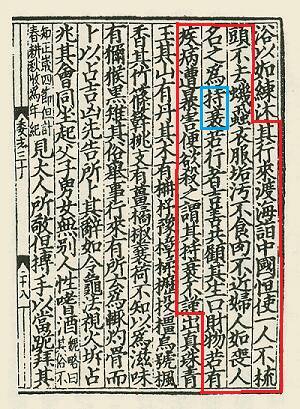 浴以如練沐其行來渡海詣中國恒使一人不梳
頭不去蟣蝨衣服垢汚不食肉不近婦人如喪人
名之爲持衰若行者吉善共顧其生口財物若有
疾病遭暴害便欲殺之謂其持衰不謹出真珠青
玉其山有丹其木有柟杼豫樟楺櫪投橿烏號楓
香其竹篠簳桃支有薑橘椒蘘荷不知以爲滋味
有獮猴黒雉其俗舉事行來有所云爲輒灼骨而
卜以占吉凶先告所卜其辭如令龜法視火坼占
兆其會同坐起父子男女無別人性嗜酒魏略曰其俗不
知正歲四節但計春耕秋收爲年紀見大人所敬但搏手以當跪拜其